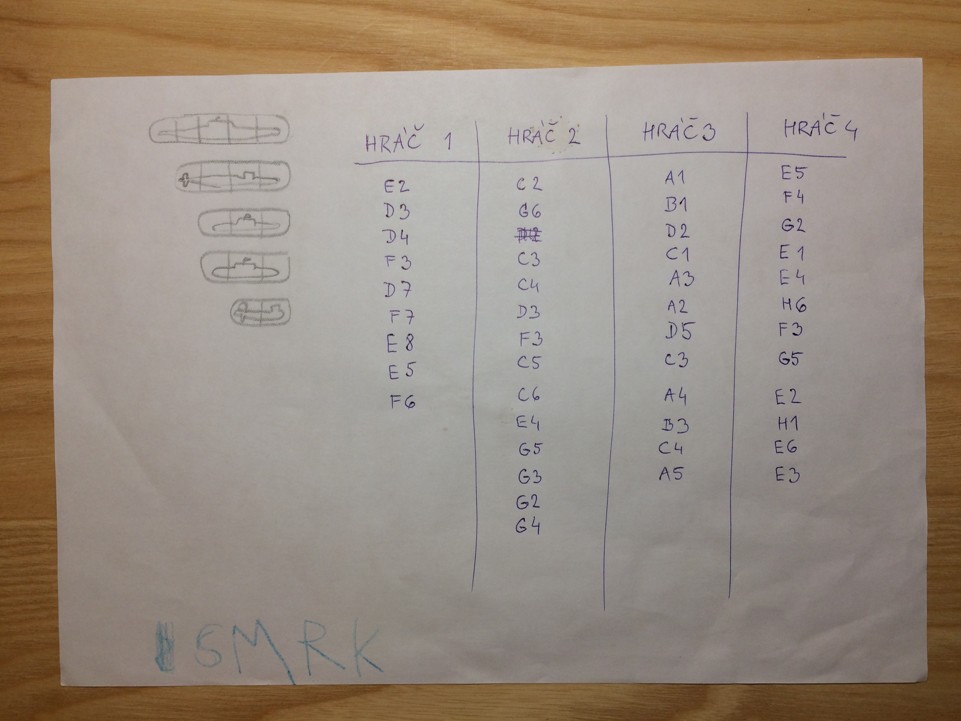 HRÁČ 1 HRÁČ 2 HRÁČ 3 HRÁČ 4
E2 C2 A1 E5
D3 G6 B1 F4
D4 D2 G2
F3 C3 C1 E1
D7 C4 A3 E4
F7 D3 A2 H6
E8 F3 D5 F3
E5 C5 C3 G5
F6 C6 A4 E2
E4 B3 H1
G5 C4 E6
G3 A5 E3
G2
G4
SMRK